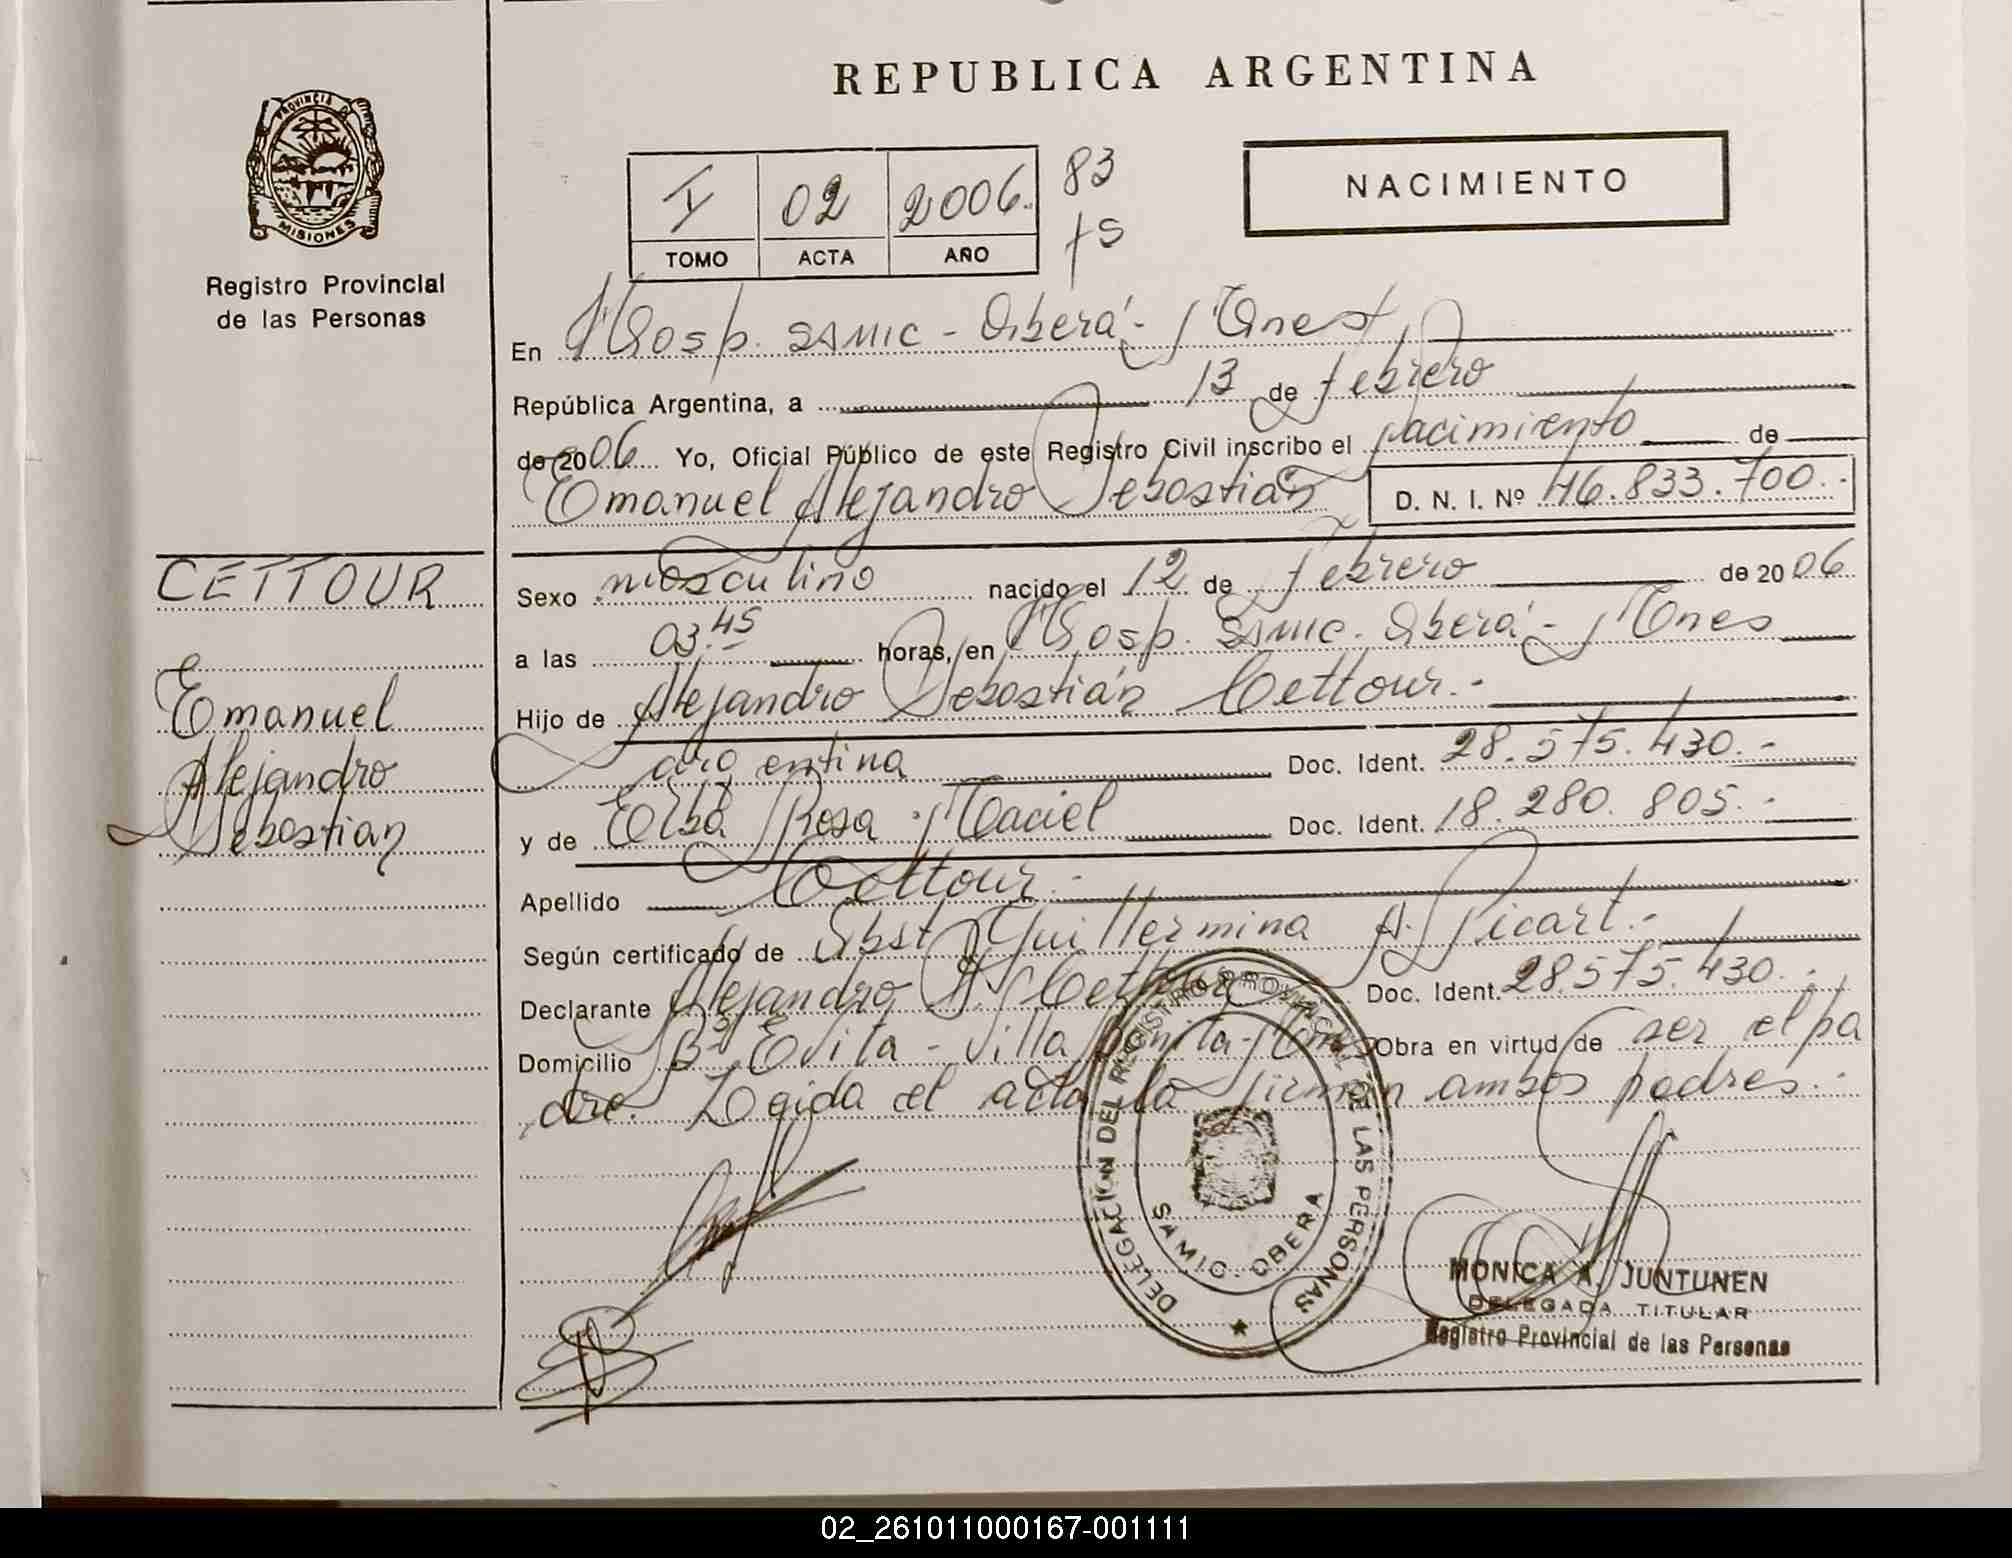 REPUBLICA ARGENTINA
PROVINCIA DE
MISIONES
Registro Provincial
de las Personas
I 02 2006. 83
TOMO ACTA AÑO fs
NACIMIENTO
En Hosp. SAMIC - Oberá - Mnes
República Argentina, a 13 de febrero
de 2006 Yo, Oficial Público de este Registro Civil inscribo el nacimiento de
Emanuel Alejandro Sebastián D. N. I. Nº 46.833.700.-
CETTOUR
Emanuel
Alejandro
Sebastian
Sexo masculino nacido el 12 de febrero de 2006
a las 03.45 horas, en Hosp. Samic. Oberá - Mnes
Hijo de Alejandro Sebastián Cettour.-
argentina Doc. Ident. 28.575.430.-
y de Elba Rosa Maciel Doc. Ident. 18.280.805.-
Apellido Cettour.-
Según certificado de Obst. Guillermina A. Picart.-
Declarante Alejandro S. Cettour Doc. Ident. 28.575.430.-
Domicilio Bº Evita - Villa Bonita - Mnes Obra en virtud de ser el pa
dre. Leida el acta la firman ambos padres.-
DELEGACION DEL REGISTRO PROVINCIAL DE LAS PERSONAS
SAMIC. OBERA
MONICA A. JUNTUNEN
DELEGADA TITULAR
Registro Provincial de las Personas
02_261011000167-001111